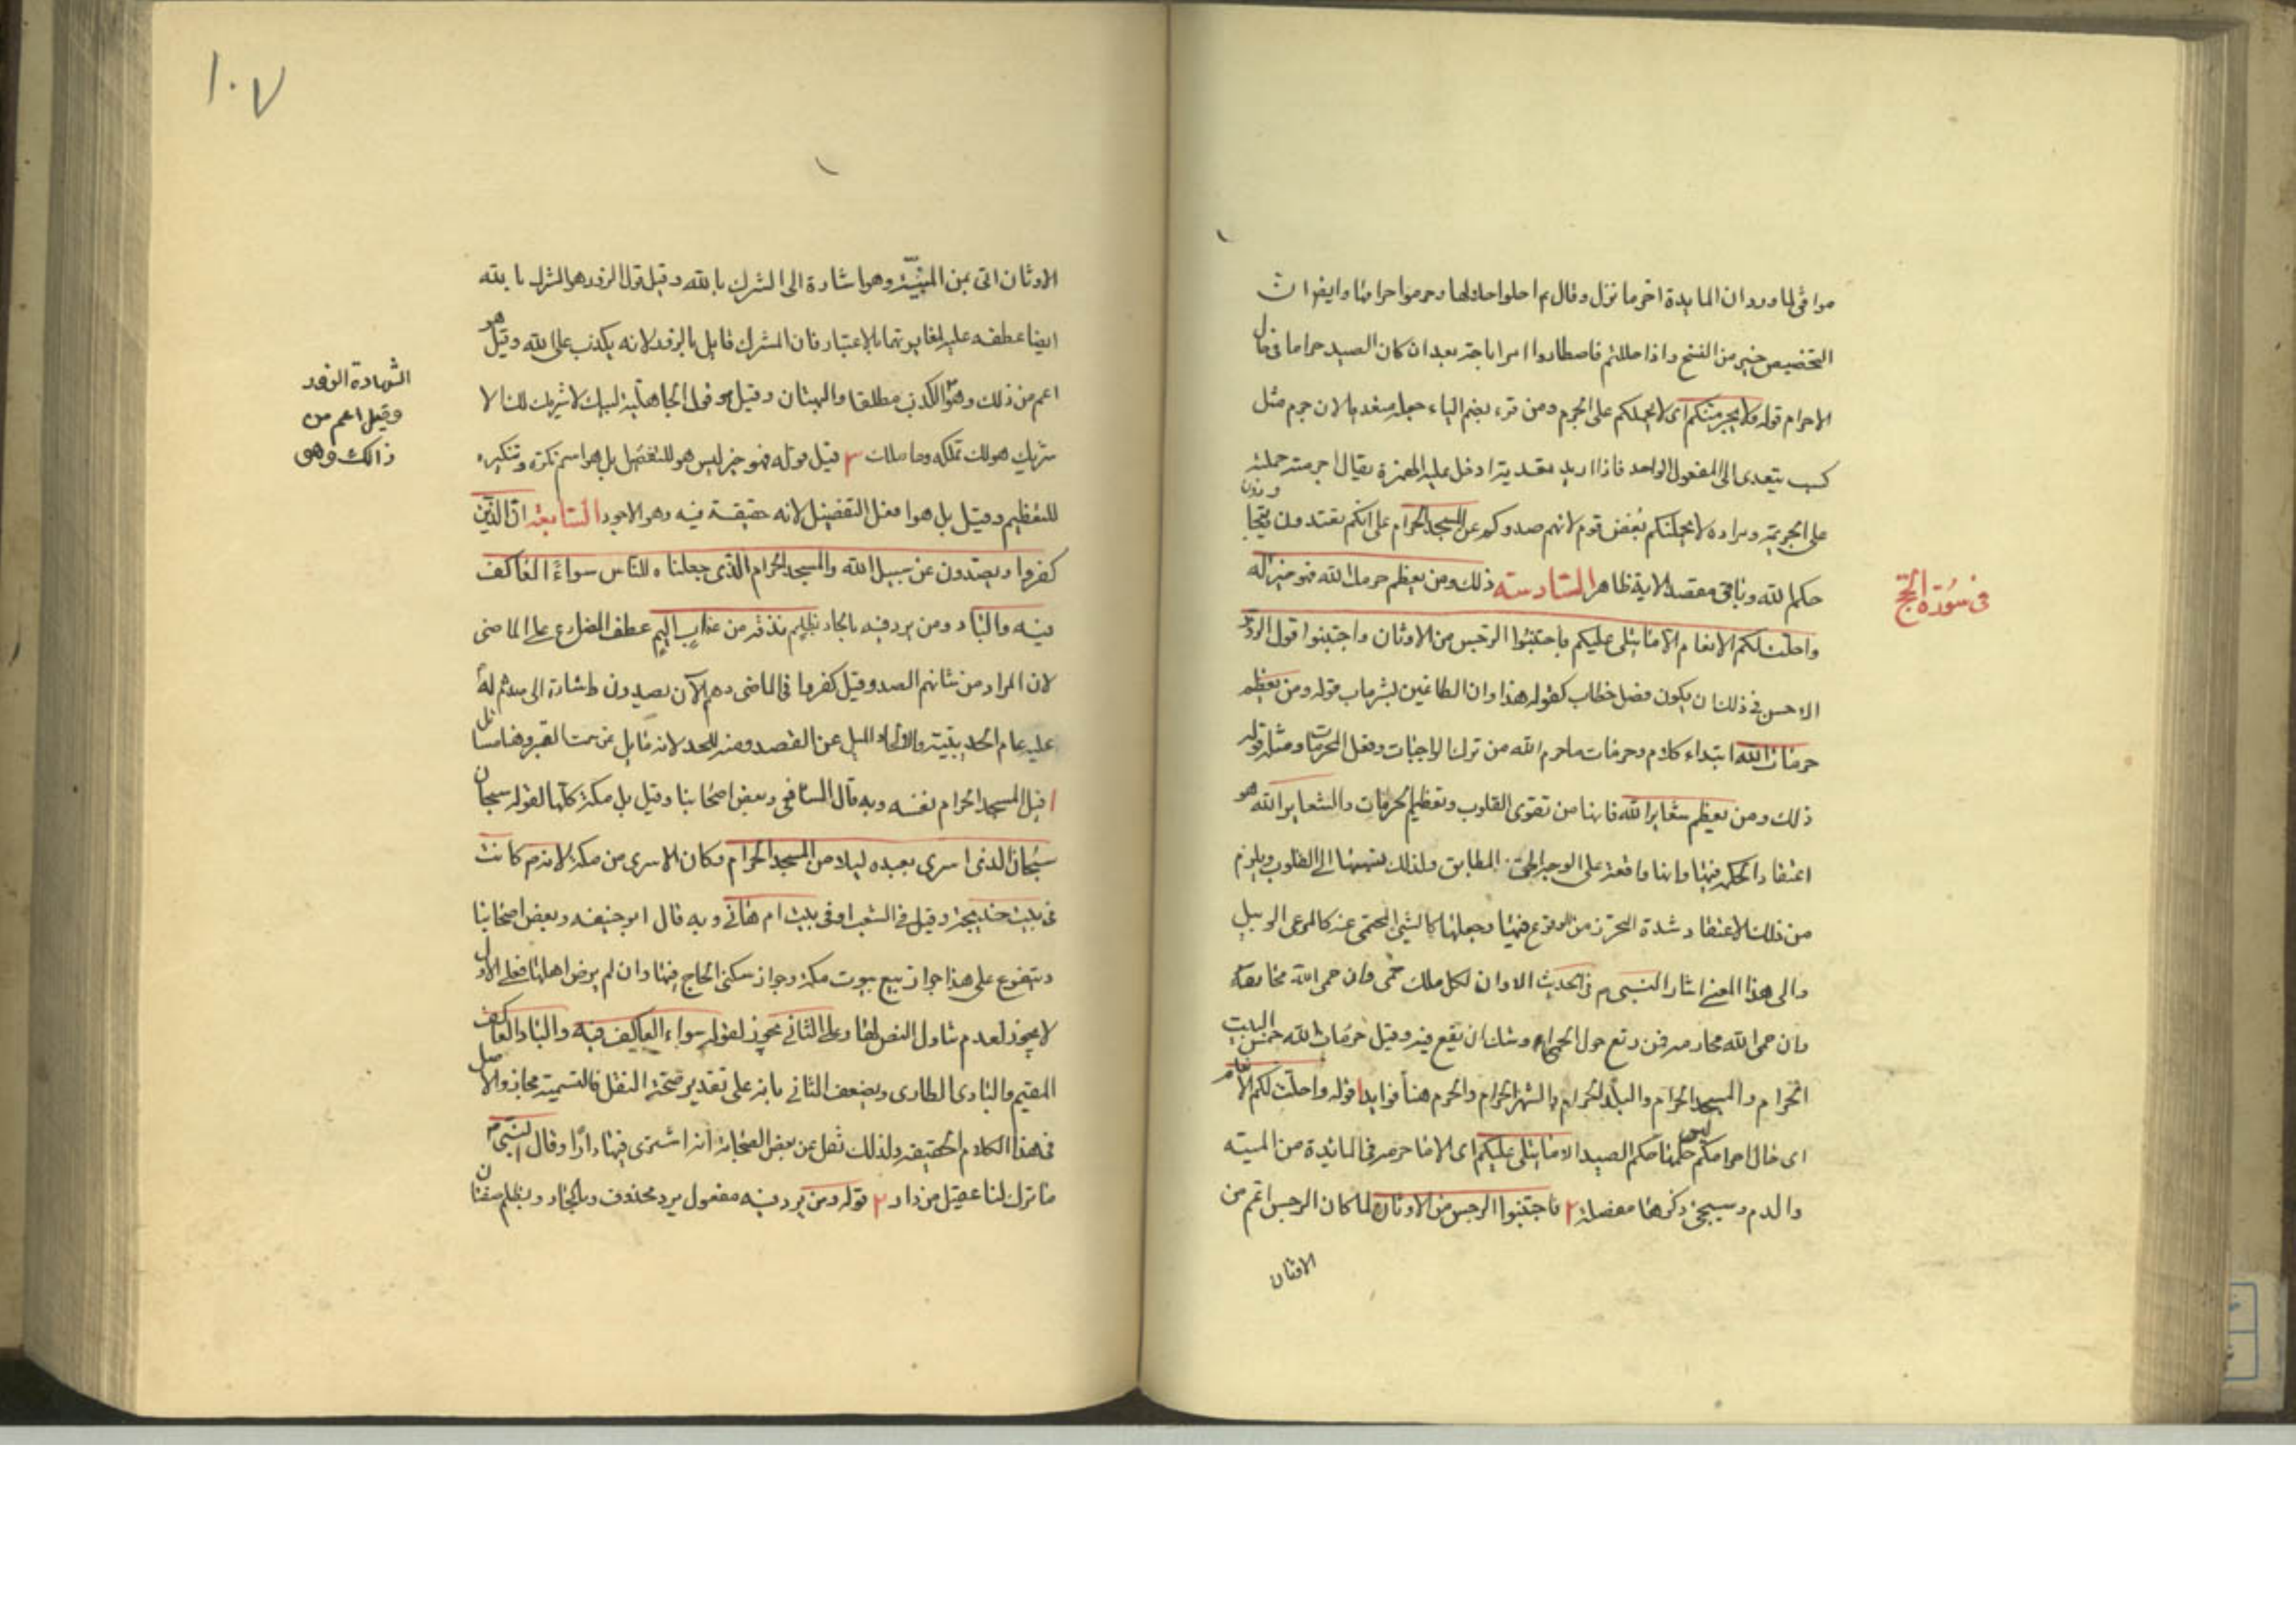 موافق لما ورد ان المايدة اخر ما نزل وقال م احلوا حلالها وحرموا حرامها وايضا ان
التخصيص خير من النسخ واذا حللتم فاصطادوا امر اباحة بعد ان كان الصيد حراما فى حال
الاحرام قوله ولا يجرمنكم اى لا يحملكم على الجرم ومن قرء بضم الياء جعله متعديا لان جرم مثل
كسب يتعدى الى المفعول الواحد فاذا اريد تعديته ادخل عليه الهمزة يقال اجرمته حملته
على الجريمة ومراده لا يحملنكم بغض قوم لانهم صدوكم عن المسجد الحرام على انكم تعتدون وتتجاوزون
حكم الله وباقى مقصد الاية ظاهر السادسة ذلك ومن يعظم حرمات الله فهو خير له
فى سورة الحج
واحلت لكم الانعام الا ما يتلى عليكم فاجتنبوا الرجس من الاوثان واجتنبوا قول الزور
الاحسن فى ذلك ان يكون فصل خطاب كقوله هذا وان للطاغين لشر ماب قوله ومن يعظم
حرمات الله ابتداء كلام وحرمات ما حرم الله من ترك الواجبات وفعل المحرمات ومثله قوله
ذلك ومن يعظم شعاير الله فانها من تقوى القلوب وتعظيم الحرمات والشعاير الله هو
اعتقاد الحكمة فيها وانها واقعة على الوجه الحق المطابق ولذلك نسبها الى القلوب ويلزم
من ذلك الاعتقاد شدة التحرز من الوقوع فيها وجعلها كالشئ المحتمى عنه كالمرعى الوبيل
والى هذا المعنى اشار النبى م فى الحديث الا وان لكل ملك حمى وان حمى الله محارمه
وان حمى الله محارمه فمن رتع حول الحمى اوشك ان يقع فيه وقيل حرمات الله خمس البيت
الحرام والمسجد الحرام والبلد الحرام والشهر الحرام والحرم هنا فوايد ا قوله واحلت لكم الانعام
اى حال احرامكم ليس حكمها حكم الصيد الا ما يتلى عليكم اى الا ما حرم فى المائدة من الميته
والدم وسيجئ ذكرها مفصلة ٢ فاجتنبوا الرجس من الاوثان لما كان الرجس اعم من
الاوثان
١٠٧
الاوثان اتى بمن المبينة وهو اشارة الى الشرك بالله وقيل قول الزور هو الشرك بالله
ايضا عطفه عليه لمغايرتهما بالاعتبار فان المشرك قايل بالزور لانه يكذب على الله وقيل هو
الشهادة الزور
وقيل اعم من
ذالك وهو
اعم من ذلك وهو الكذب مطلقا والبهتان وقيل هو قول الجاهلية لبيك لا شريك لك الا
شريك هو لك تملكه وما ملك ٣ قيل قوله فهو خير ليس هو للتفضيل بل هو اسم نكرة وتنكيره
للتعظيم وقيل بل هو افعل التفضيل لانه حقيقة فيه وهو الاجود السابعة ان الذين
كفروا ويصدون عن سبيل الله والمسجد الحرام الذى جعلناه للناس سواءً العاكف
فيه والباد ومن يرد فيه بالحاد بظلم نذقه من عذاب اليم عطف المضارع على الماضى
لان المراد من شانهم الصد وقيل كفروا فى الماضى وهم الآن يصدون واشارة الى صدهم له
عليه عام الحديبية والالحاد الميل عن القصد ومنه اللحد لانه مايل عن سمت القبر وهنا مسائل
ا قيل المسجد الحرام نفسه وبه قال الشافعى وبعض اصحابنا وقيل بل مكة كلها لقوله سبحان
سبحان الذى اسرى بعبده ليلا من المسجد الحرام وكان الاسرى من مكة لانه م كان
فى بيت خديجة وقيل فى الشعب او فى بيت ام هانى وبه قال ابو حنيفه وبعض اصحابنا
ويتفرع على هذا جواز بيع بيوت مكة وجواز سكنى الحاج فيها وان لم يرض اهلها فعلى الاول
لا يجوز لعدم تناول النص لها وعلى الثانى يجوز لقوله سواء العاكف فيه والباد والعاكف
المقيم والبادى الطارى ويضعف الثانى بانه على تقدير صحة النقل فالتسمية مجاز والاصل
فى هذا الكلام الحقيقة ولذلك نقل عن بعض الصحابة انه اشترى فيها دارًا وقال النبى م
ما ترك لنا عقيل من دار ٢ قوله ومن يرد فيه مفعول يرد محذوف وبالحاد وبظلم صفتان